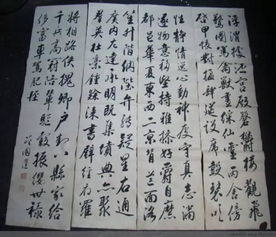 浮渭據涇宮殿盤鬱樓觀飛
驚圖寫禽獸畫彩仙靈丙舍傍
啓甲帳對楹肆筵設席鼓瑟吹
性靜情逸心動神疲守真志滿
逐物意移堅持雅操好爵自縻
都邑華夏東西二京背邙面洛
笙升階納陛弁轉疑星右通
廣內左達承明既集墳典亦聚
群英杜稾鍾隸漆書壁經府羅
將相路俠槐卿戶封八縣家給
千兵高冠陪輦驅轂振纓世祿
侈富車駕肥輕